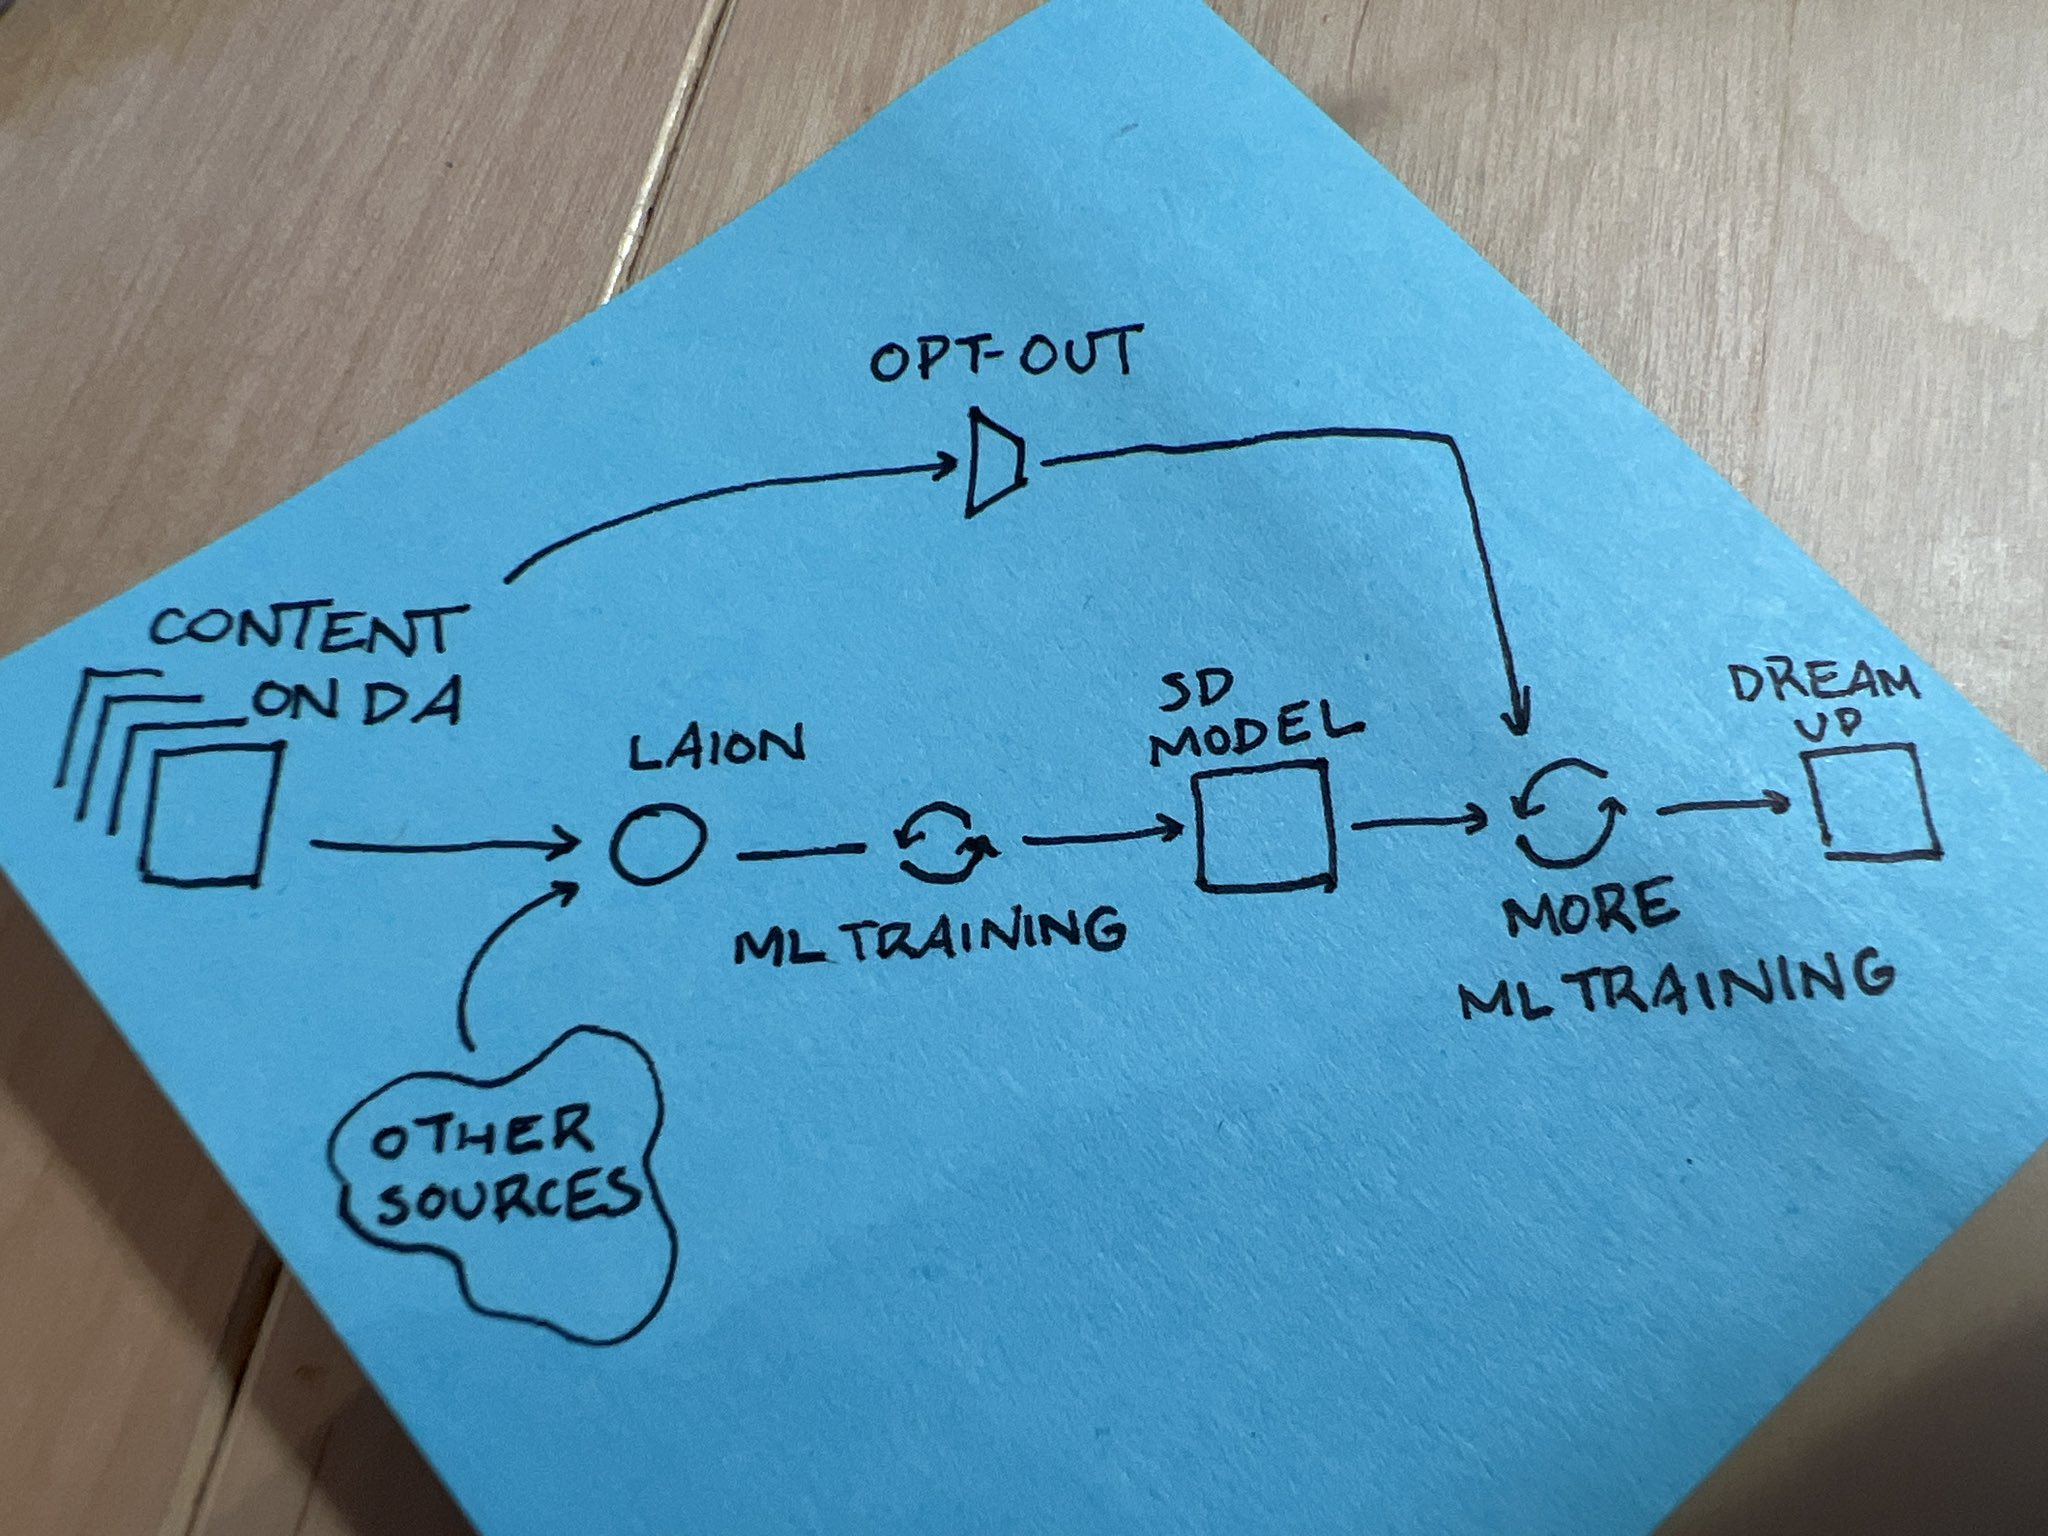 OPT-OUT
CONTENT
ON DA
LAION
ML TRAINING
SD
MODEL
DREAM
UP
MORE
ML TRAINING
OTHER
SOURCES